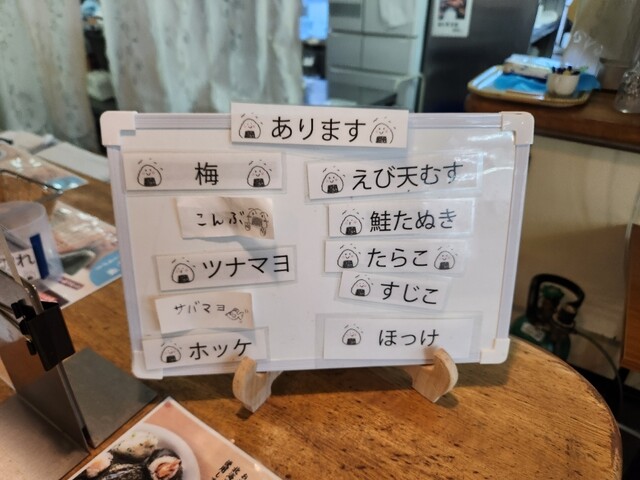 あります
梅
こんぶ
ツナマヨ
サバマヨ
ホッケ
えび天むす
鮭たぬき
たらこ
すじこ
ほっけ